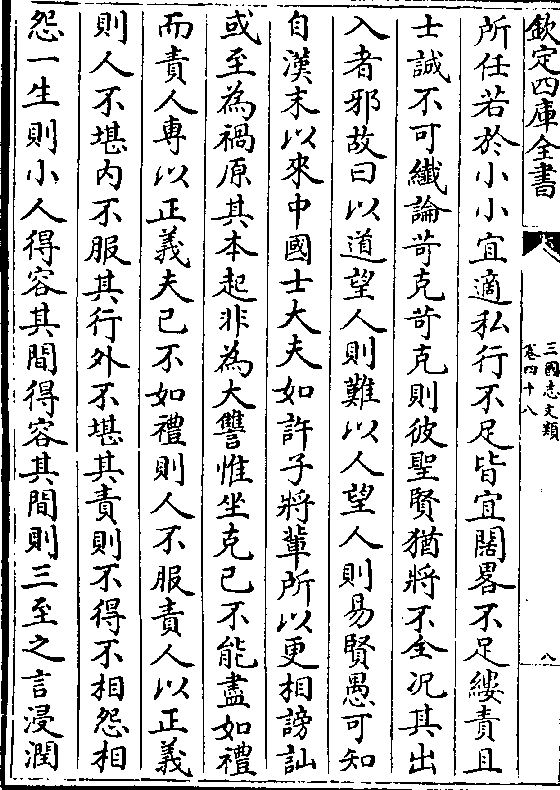 欽定四庫全書
三國志文類
卷四十八
八
所任若於小小宜適私行不足皆宜闊畧不足縷責且
士誠不可纎論苛克苛克則彼聖賢猶將不全況其出
入者邪故曰以道望人則難以人望人則易賢愚可知
自漢末以來中國士大夫如許子將輩所以更相謗訕
或至為禍原其本起非為大讐惟坐克己不能盡如禮
而責人專以正義夫己不如禮則人不服責人以正義
則人不堪内不服其行外不堪其責則不得不相怨相
怨一生則小人得容其間得容其間則三至之言浸潤